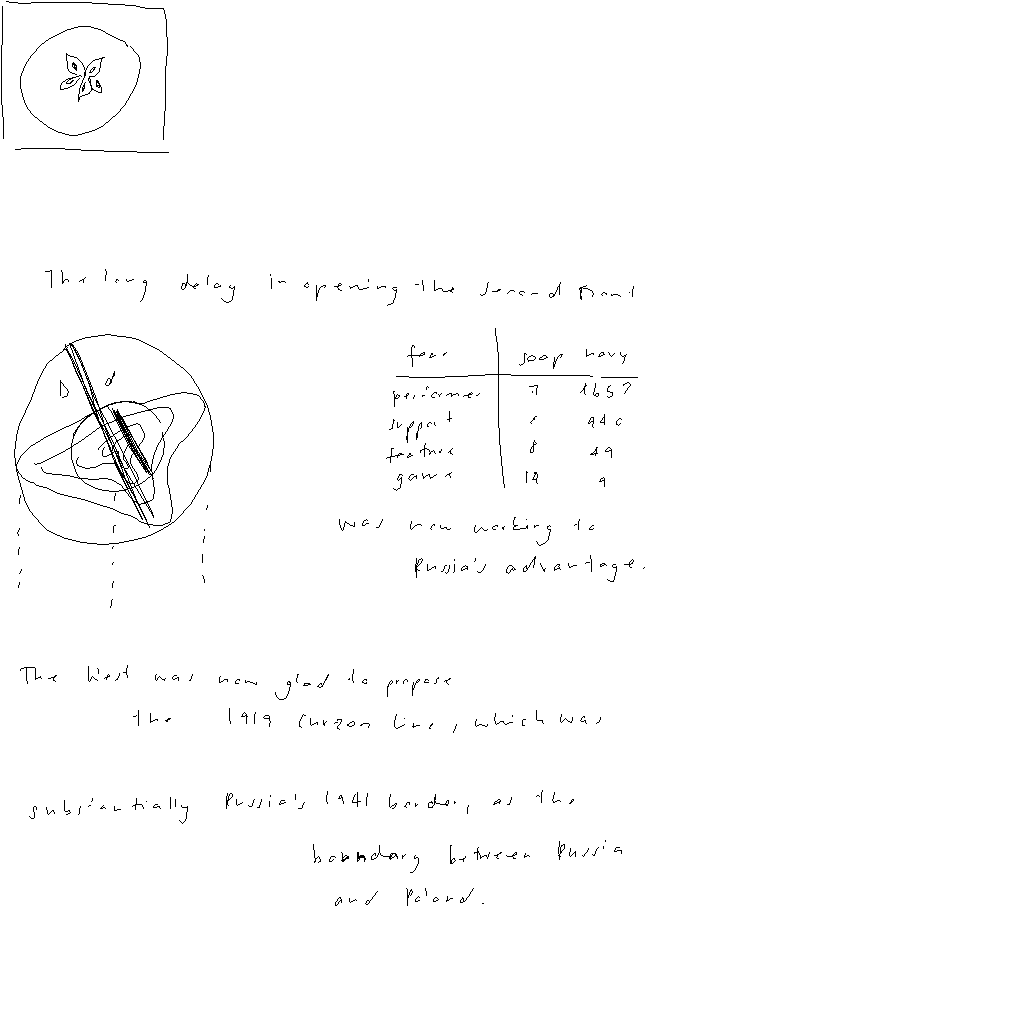 The long delay in opening the second front
D d
fear soap navy
performer 7 1657
support 940
feature 8 49
game 19 9
was now working to
Russia's advantage.
The West was now glad to propose
the 1919 Curzon Line, which was
substantially Russia's 1941 border, as the
boundary between Russia
and Poland.